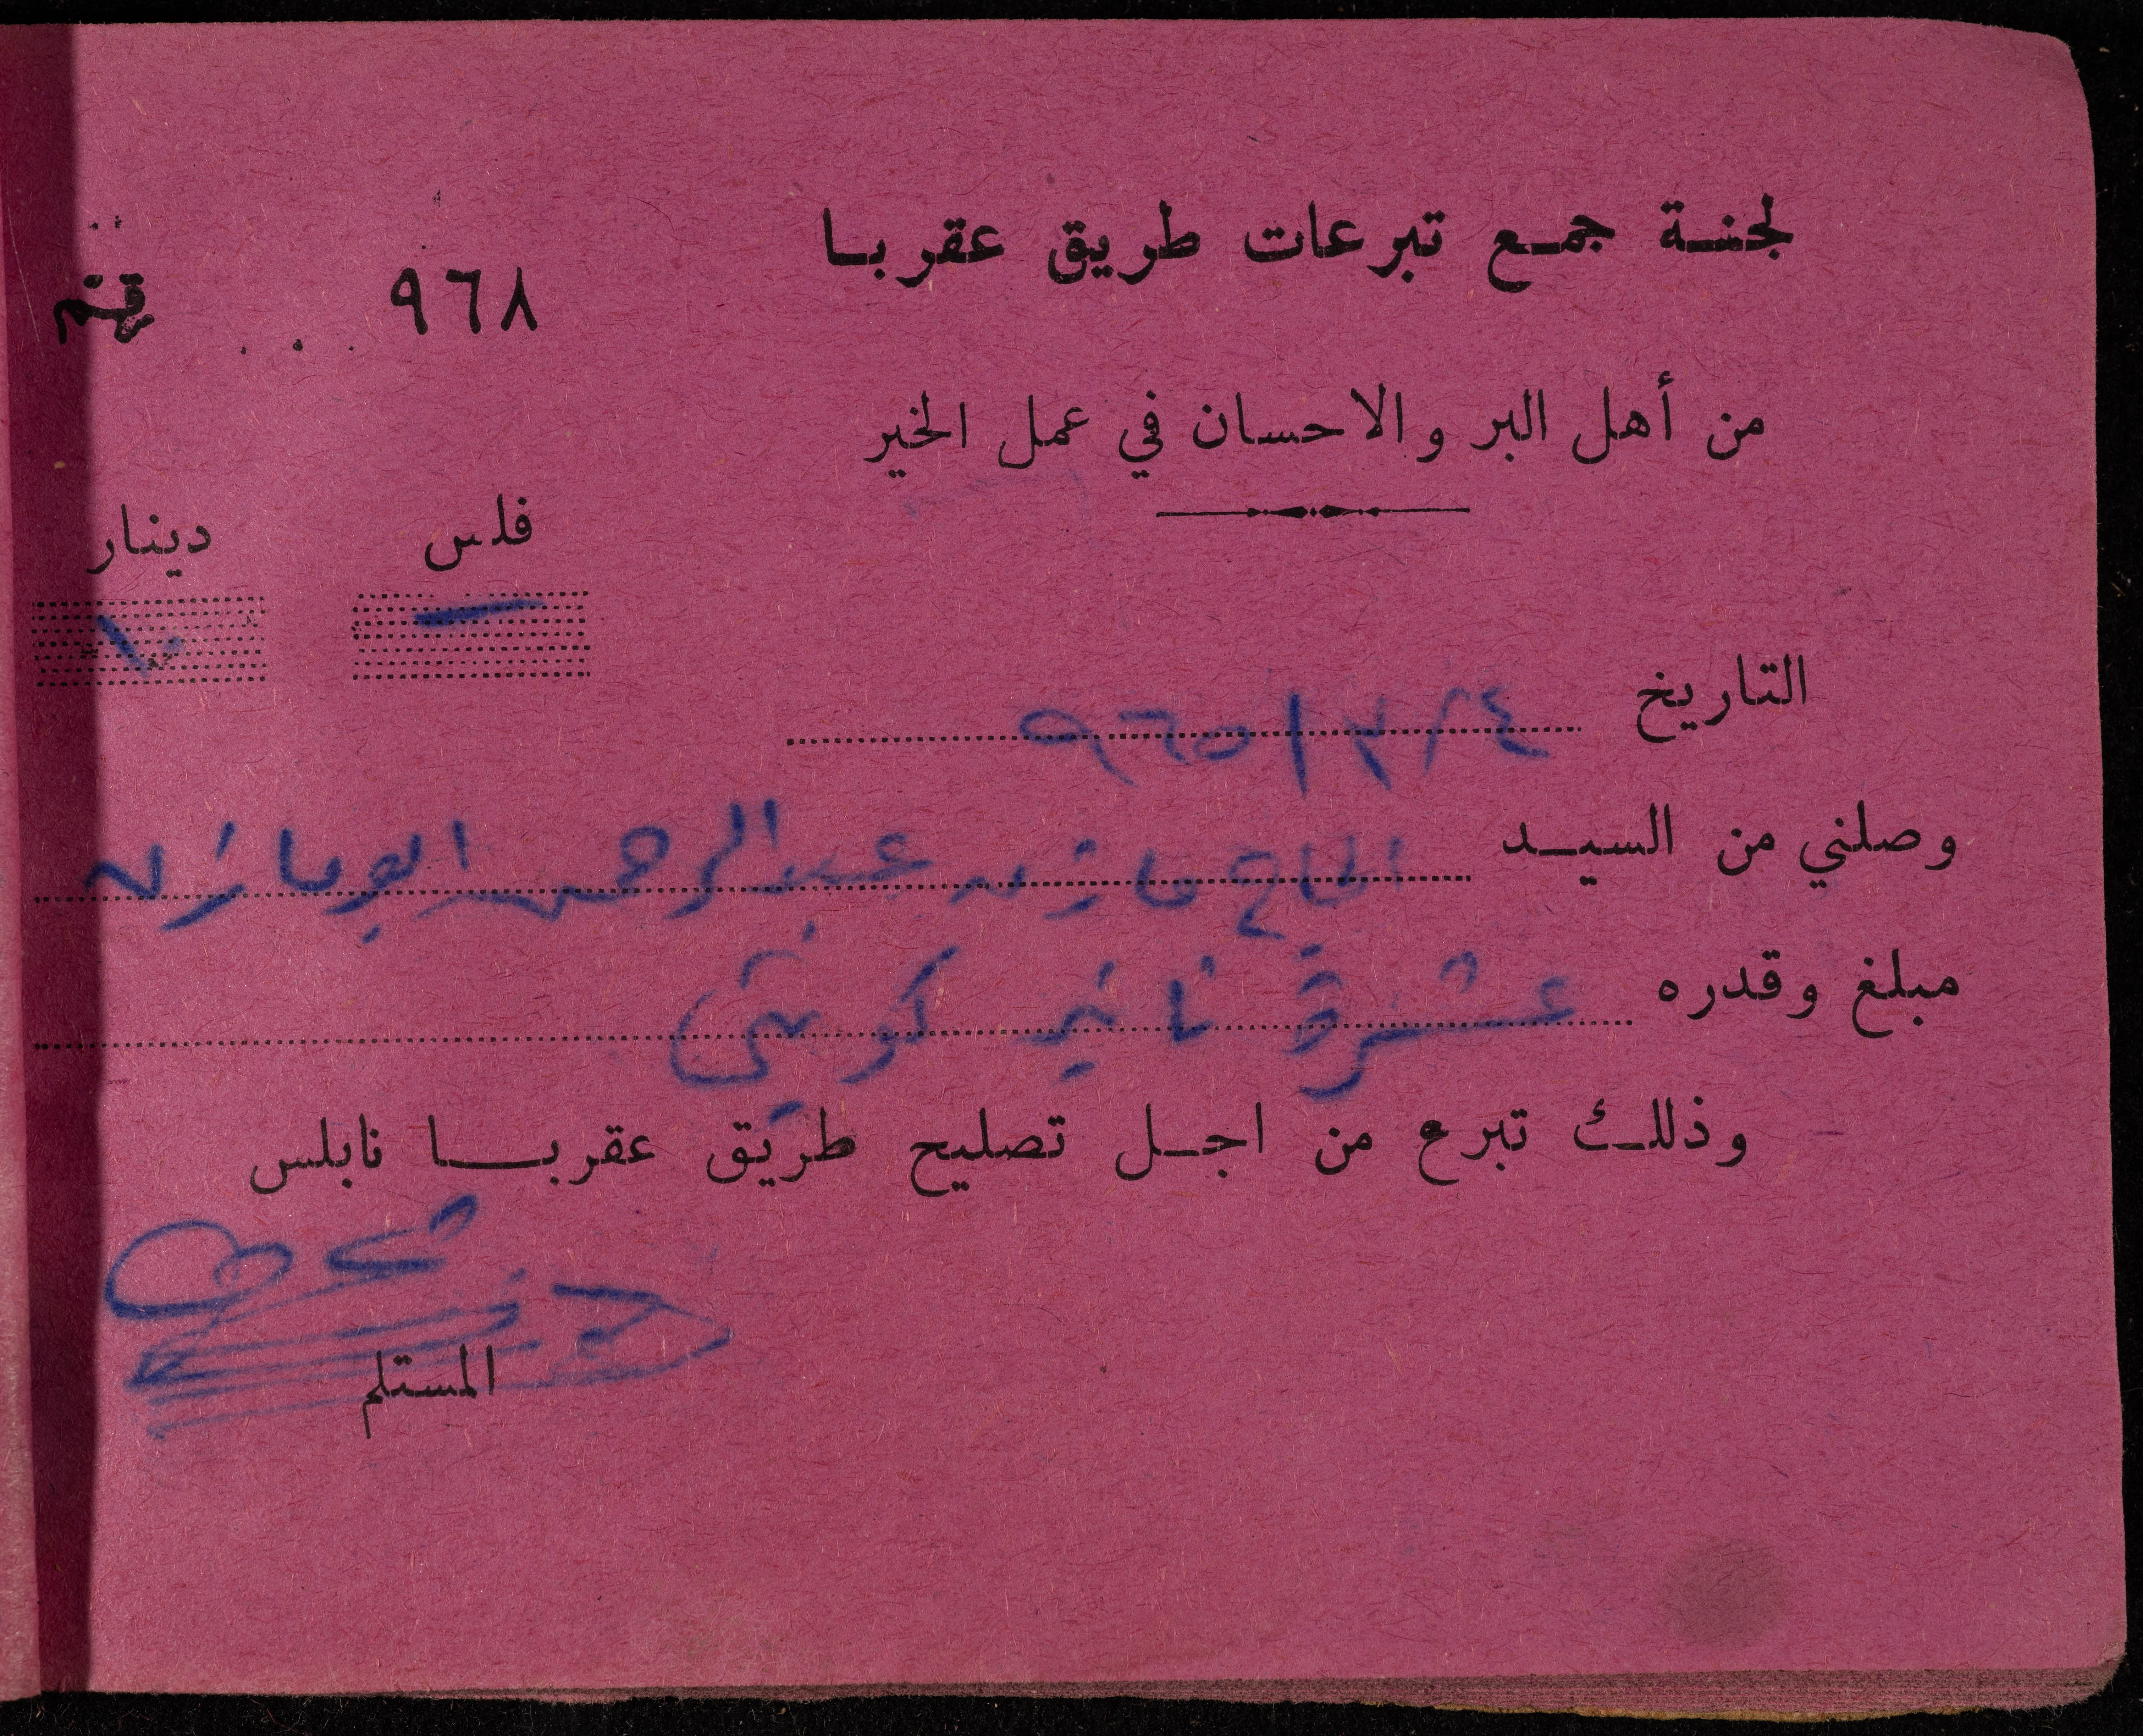 لجنة جمع تبرعات طريق عقربا
٩٦٨
من أهل البر والاحسان في عمل الخير
فلس دينار
— ١٠
التاريخ ٢٤ / ٣ / ٩٦٥
وصلني من السيد الحاج مازن عبدالرحمن ابو مازن
مبلغ وقدره عشرة نانير كويتي
وذلك تبرع من اجل تصليح طريق عقربا نابلس
المستلم